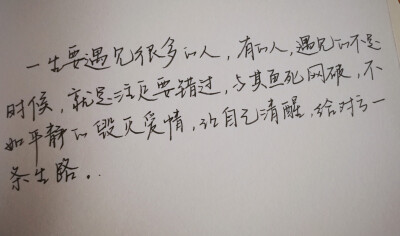 一生要遇见很多的人,有的人,遇见的不是
时候,就是注定要错过,与其鱼死网破,不
如平静的毁灭爱情,让自己清醒,给对方一
条生路..